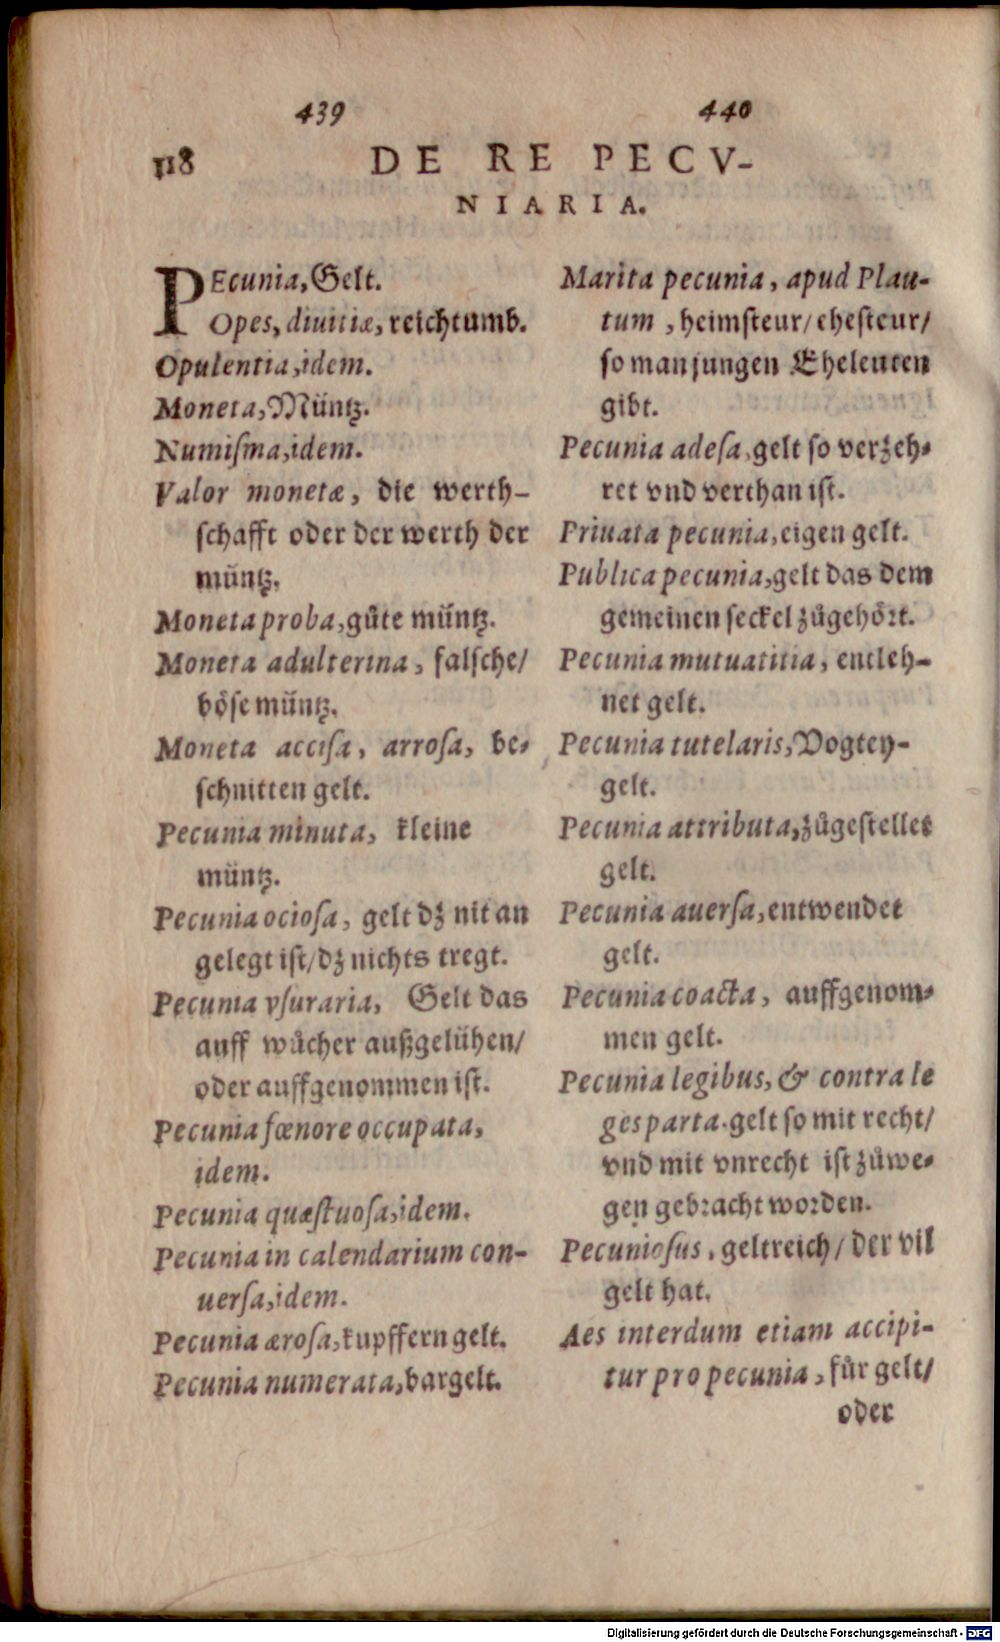 439 440
118 DE RE PECV-
NIARIA.
PEcunia, Gelt.
Opes, diuitiæ, reichtumb.
Opulentia, idem.
Moneta, Müntz.
Numiſma, idem.
Valor monetæ, die werth-
ſchafft oder der werth der
müntz.
Moneta proba, gůte müntz.
Moneta adulterina, falſche/
böſe müntz.
Moneta acciſa, arroſa, be-
ſchnitten gelt.
Pecunia minuta, kleine
müntz.
Pecunia ocioſa, gelt dz nit an
gelegt iſt/ dz nichts tregt.
Pecunia vſuraria, Gelt das
auff wůcher außgelühen/
oder auffgenommen iſt.
Pecunia fœnore occupata,
idem.
Pecunia quæſtuoſa, idem.
Pecunia in calendarium con-
uerſa, idem.
Pecunia æroſa, kupffern gelt.
Pecunia numerata, bargelt.
Marita pecunia, apud Plau-
tum, heimſteur/ eheſteur/
ſo man jungen Eheleuten
gibt.
Pecunia adeſa, gelt ſo verzeh-
ret vnd verthan iſt.
Priuata pecunia, eigen gelt.
Publica pecunia, gelt das dem
gemeinen ſeckel zůgehört.
Pecunia mutuatitia, entleh-
net gelt.
Pecunia tutelaris, Vogtey-
gelt.
Pecunia attributa, zůgeſtellet
gelt.
Pecunia auerſa, entwendet
gelt.
Pecunia coacta, auffgenom-
men gelt.
Pecunia legibus, & contra le
ges parta. gelt ſo mit recht/
vnd mit vnrecht iſt zůwe-
gen gebracht worden.
Pecunioſus, geltreich/ der vil
gelt hat.
Aes interdum etiam accipi-
tur pro pecunia, für gelt/
oder
Digitalisierung gefördert durch die Deutsche Forschungsgemeinschaft - DFG